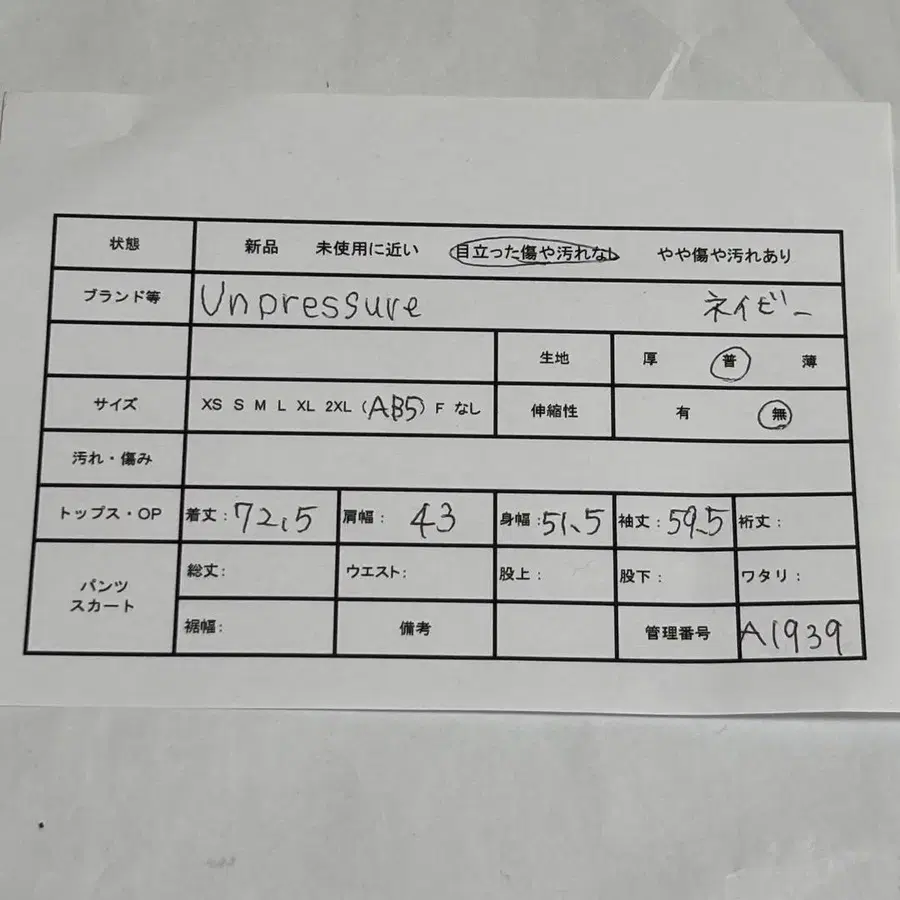 状態 新品 未使用に近い 目立った傷や汚れなし やや傷や汚れあり
ブランド等 Unpressure ネイビー
生地 厚 普 薄
サイズ XS S M L XL 2XL (AB5) F なし 伸縮性 有 無
汚れ・傷み
トップス・OP 着丈:72.5 肩幅: 43 身幅:51.5 袖丈:59.5 裄丈:
パンツ スカート 総丈: ウエスト: 股上: 股下: ワタリ:
裾幅: 備考 管理番号 A1939